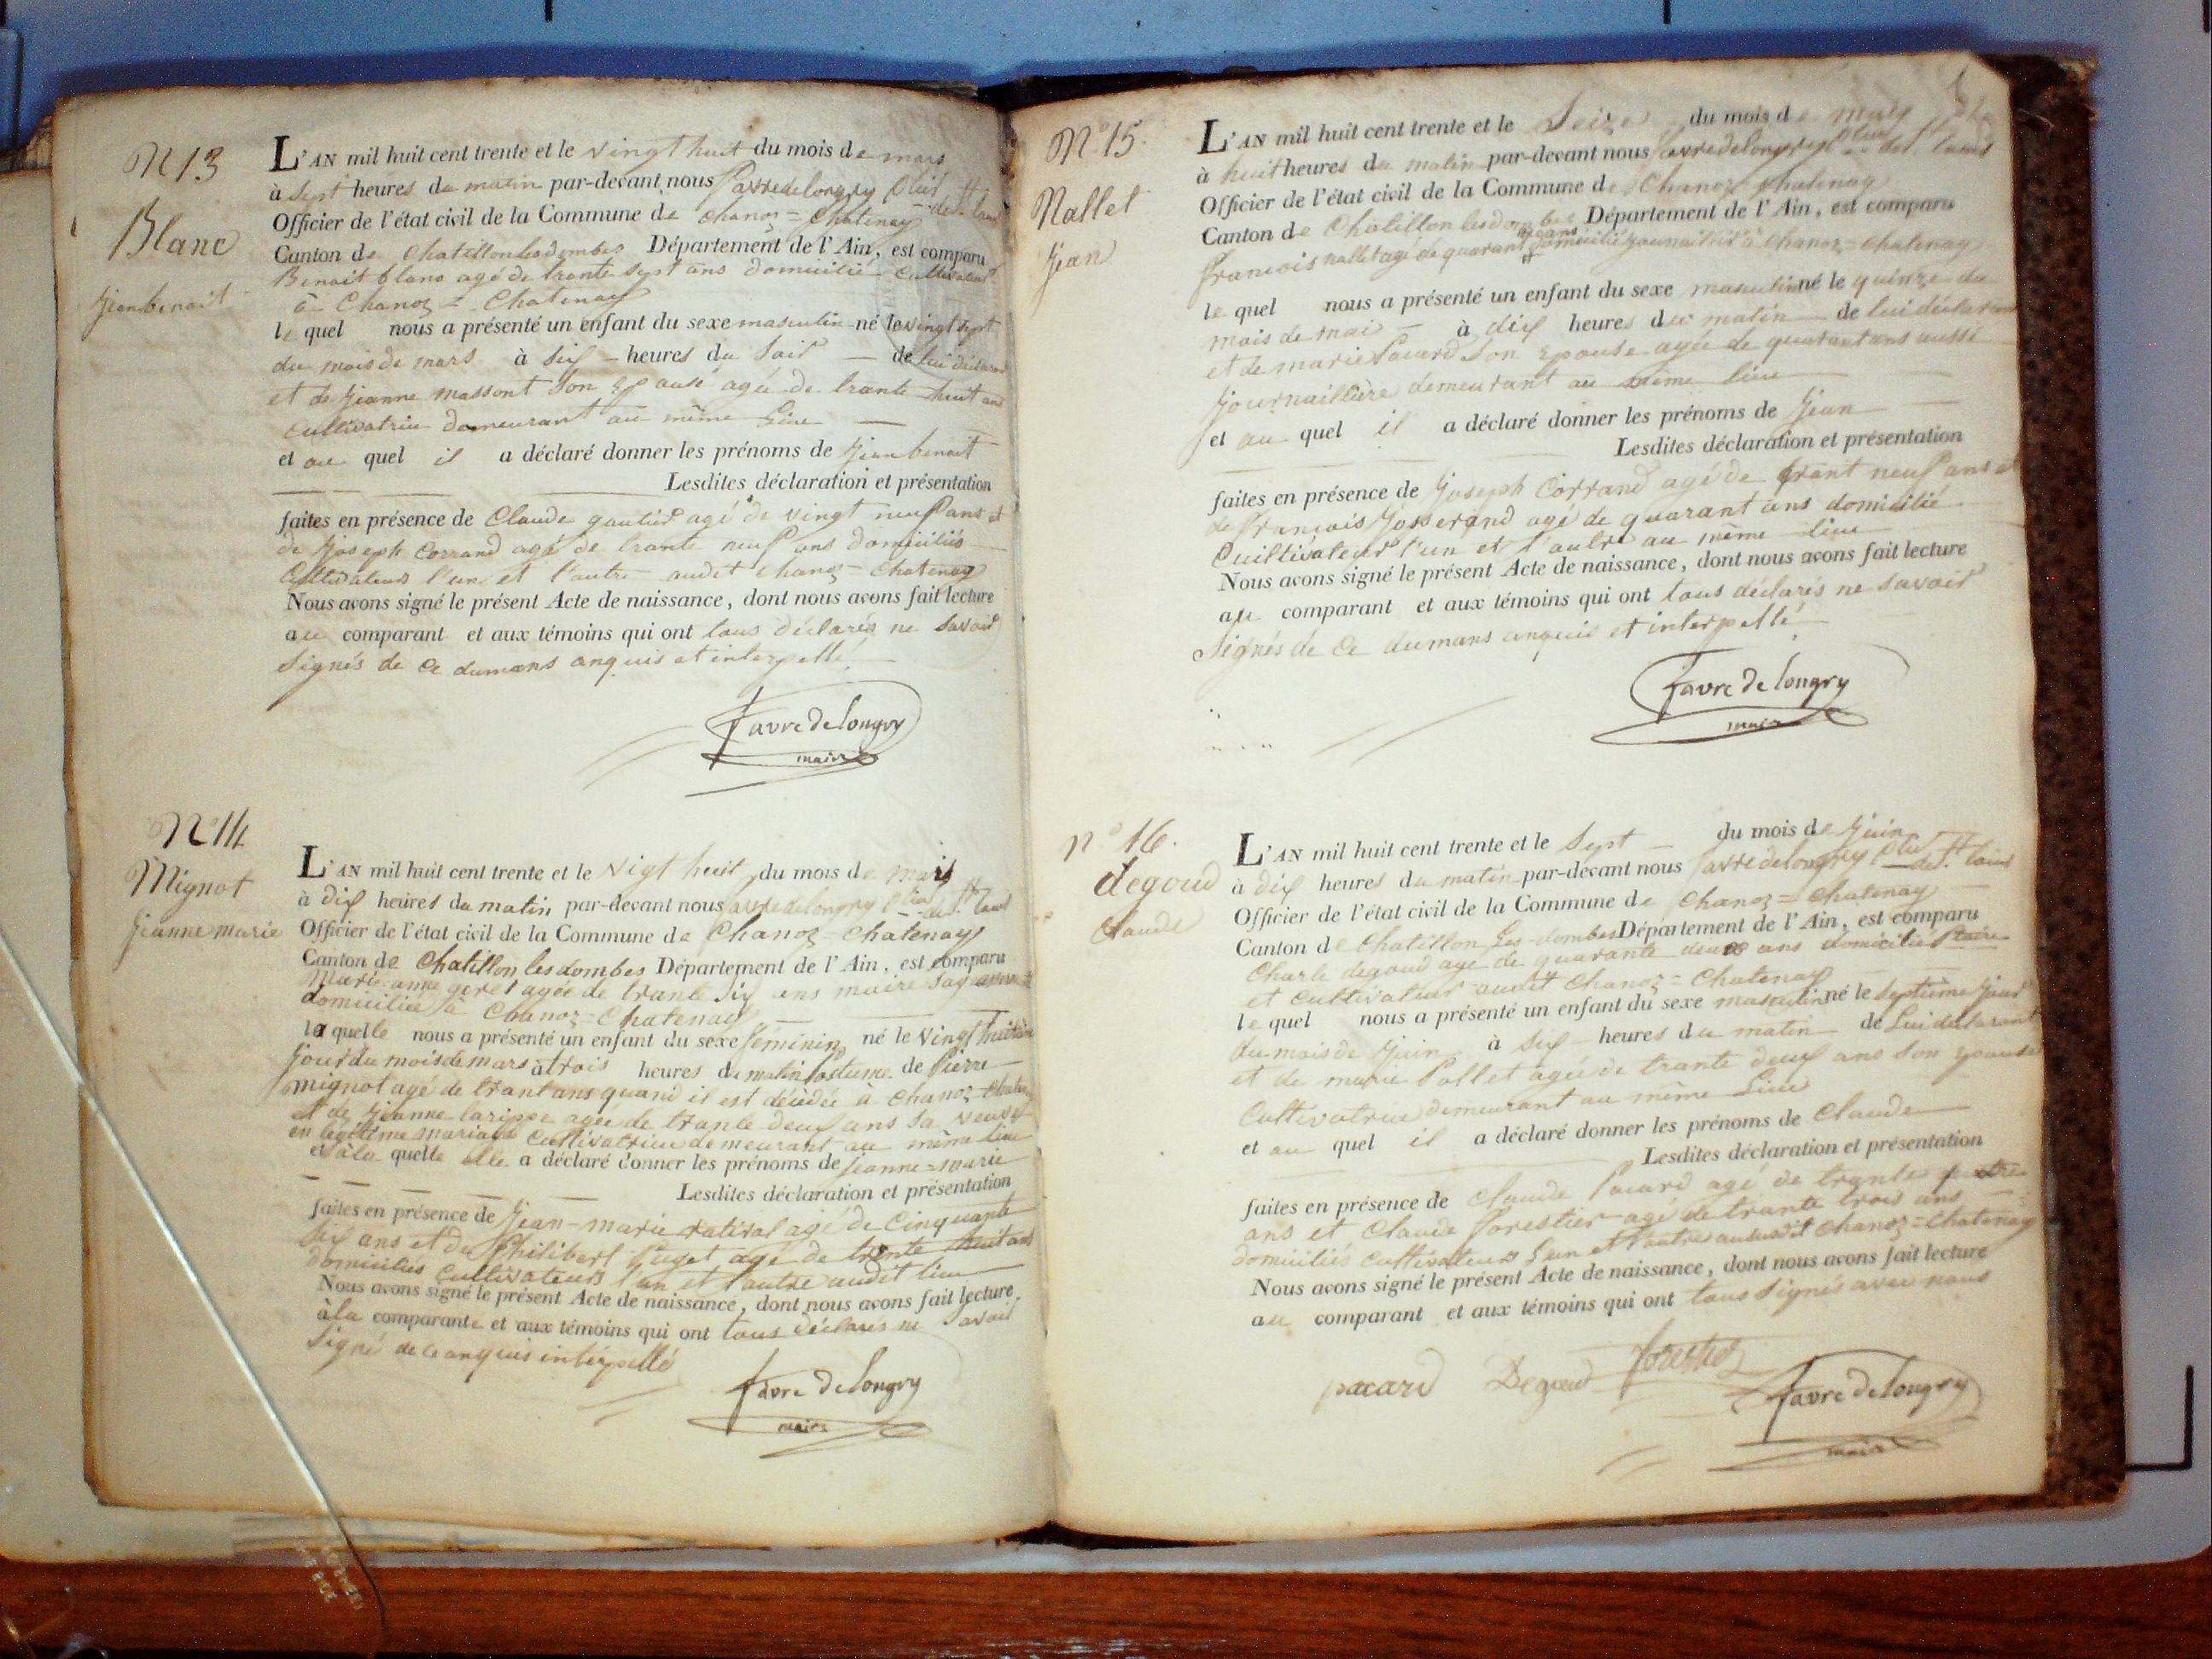 N 13
Blanc
Jean benoit
L'AN mil huit cent trente et le vingt huit du mois de mars
à sept heures du matin par-devant nous favre de longry
Officier de l'état civil de la Commune de chanoz = Chatenay
Canton de Chatillon les dombes Département de l'Ain, est comparu
Benoit blanc agé de trante sept ans domicilié Cultivateur
à Chanoz = Chatenay
le quel nous a présenté un enfant du sexe masculin né le vingt sept
du mois de mars à six heures du soir de lui déclarant
et de Jeanne massont son Epouse agée de trante huit ans
cultivatrice demeurant au même Lieu
et au quel il a déclaré donner les prénoms de Jean benoit
Lesdites déclaration et présentation
faites en présence de Claude gautier agé de vingt neuf ans et
de Joseph Corrand agé de trante neuf ans domiciliés
Cultivateurs l'un et l'autre audit chanoz = Chatenay
Nous avons signé le présent Acte de naissance, dont nous avons fait lecture
au comparant et aux témoins qui ont tous déclarés ne savoir
signés de ce dumans anquis et interpellé
favre de longry
maire
N° 14
Mignot
Jeanne marie
L'AN mil huit cent trente et le vigt huit du mois de mars
à dix heures du matin par-devant nous favre de longry
Officier de l'état civil de la Commune de Chanoz = Chatenay
Canton de Chatillon les dombes Département de l'Ain, est comparu
Marie anne geret agée de trante six ans
domiciliée à Chanoz = Chatenay
la quelle nous a présenté un enfant du sexe féminin né le vingt huitième
jour du mois de mars à trois heures du matin postume de Pierre
mignot agé de trant ans quand il est décédée à Chanoz
et de Jeanne agée de trante deux ans sa veuve
en légitime mariage cultivatrice demeurant au même lieu
et à la quelle elle a déclaré donner les prénoms de Jeanne = marie
Lesdites déclaration et présentation
faites en présence de Jean-marie rativat agé de Cinquante
six ans et de Philibert Puget agé de trente huit ans
domiciliés cultivateurs l'un et l'autre audit lieu
Nous avons signé le présent Acte de naissance, dont nous avons fait lecture
à la comparante et aux témoins qui ont tous déclarés ne savoir
signé de ce anquis interpellé
favre de longry
maire
N° 15
Nallet
Jean
L'AN mil huit cent trente et le Seize du mois de may
à huit heures du matin par-devant nous favre de longry
Officier de l'état civil de la Commune de Chanoz Chatenay
Canton de Chatillon les dombes Département de l'Ain, est comparu
francois nallet agé de quarant ans domicilié à Chanoz = Chatenay
le quel nous a présenté un enfant du sexe masculin né le quinze du
mois de mai à dix heures du matin de lui déclarant
et de marie Pacard son Epouse agée de quarant ans aussi
Journaillière demeurant au même lieu
et au quel il a déclaré donner les prénoms de Jean
Lesdites déclaration et présentation
faites en présence de Joseph Corrand agé de trant neuf ans et
de francois Josserand agé de quarant ans domicilié
Cuiltivateur l'un et l'autre au même lieu
Nous avons signé le présent Acte de naissance, dont nous avons fait lecture
au comparant et aux témoins qui ont tous déclarés ne savoir
signés de ce dumans anquis et interpellé
favre de longry
maire
n° 16.
degoud
Claude
L'AN mil huit cent trente et le Sept du mois de Juin
à dix heures du matin par-devant nous favre de longry
Officier de l'état civil de la Commune de Chanoz = Chatenay
Canton de Chatillon Les-dombes Département de l'Ain, est comparu
Charle degoud agé de quarante deux ans domicilié
et cultivateur audit Chanoz = Chatenay
le quel nous a présenté un enfant du sexe masculin né le septième jour
du mois de Juin à six heures du matin de Lui déclarant
et de marie Pollet agée de trante deux ans son epouse
Cultivatrice demeurant au même Lieu
et au quel il a déclaré donner les prénoms de Claude
Lesdites déclaration et présentation
faites en présence de Claude Pacard agé de trante
ans et Claude forestier agé de trante trois ans
domiciliés cultivateurs L'un et l'autre audit Chanoz = Chatenay
Nous avons signé le présent Acte de naissance, dont nous avons fait lecture
au comparant et aux témoins qui ont tous signés avec nous
pacard Degoud forestier
favre de longry
maire